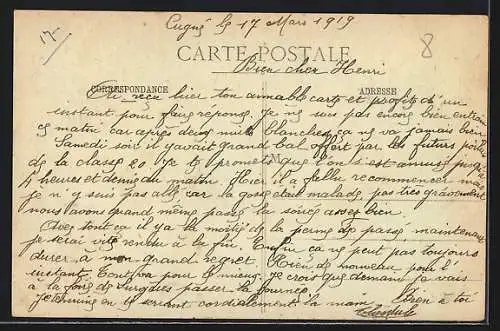 Cugné le 17 Mars 1919
CARTE POSTALE
Bien cher Henri
CORRESPONDANCE ADRESSE
Ai reçu hier ton aimable carte et profite d'un
instant pour faire réponse. Je ne suis pas encore bien en train
ce matin car après deux nuits blanches ça ne va jamais bien
Samedi soir il y avait grand bal offert par les futurs poilus
de la classe 20 je te promets que l'on s'est amusé jusqu'à
4 heures et demie du matin. Hier il a fallu recommencer mais
je n'y suis pas allé car la gosse était malade, pas très gravement
nous avons grand même passé la soirée assez bien.
Avec tout ça il y a la moitié de la perme de passé maintenant
je serai vite rendu à la fin. Enfin ça ne peut pas toujours
durer à mon grand regret. Rien de nouveau pour l'
instant. Tout va pour le mieux. Je crois que demain je vais
à la foire de Surgères passer la journée
Je termine en te serrant cordialement la main. Bien à toi